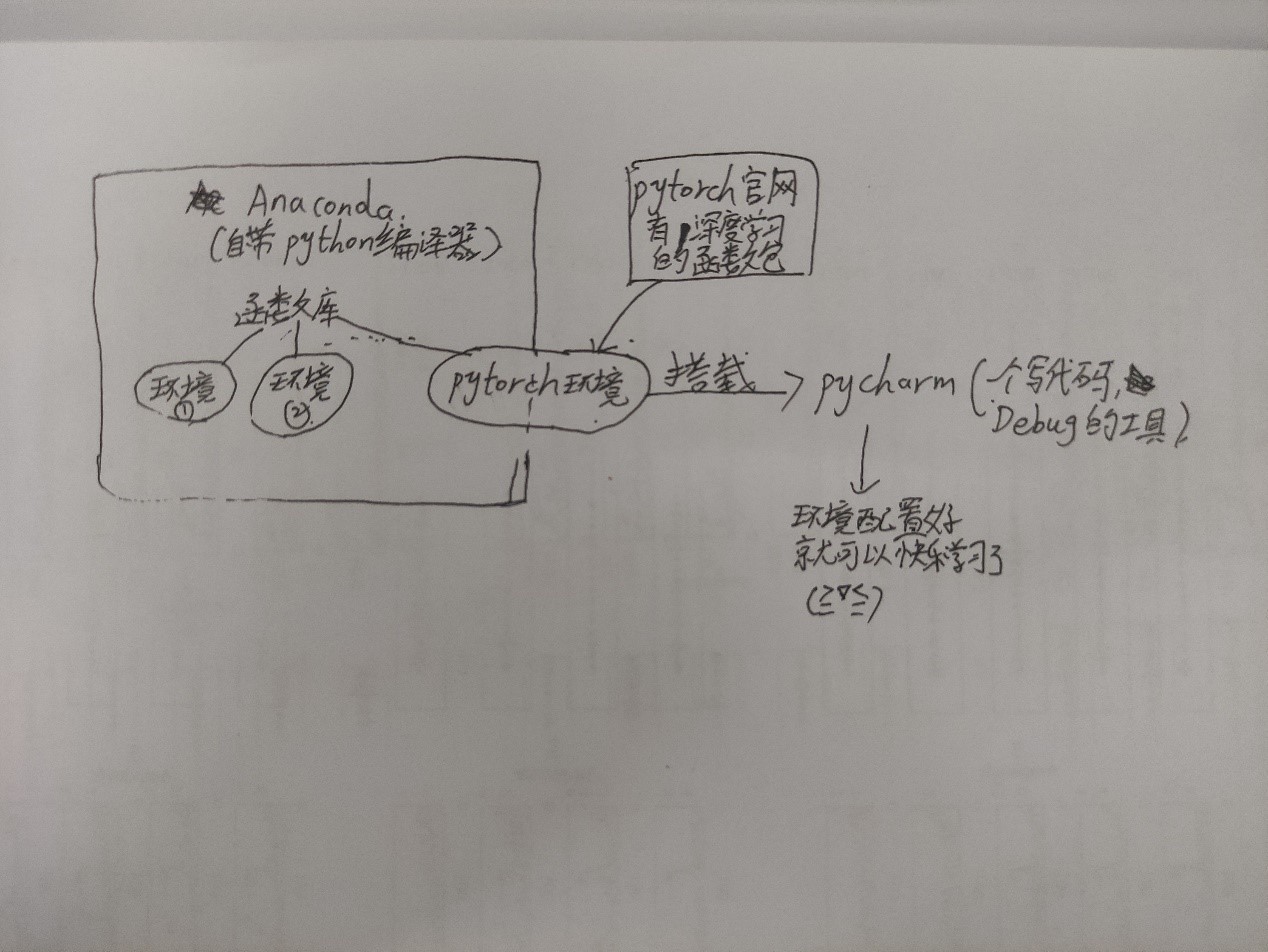 Anaconda.
(自带python编译器)
函数库
环境
①
环境
②
pytorch环境
pytorch官网
有深度学习
的函数包
搭载
pycharm (一个写代码,
Debug的工具)
环境配置好
就可以快乐学习了
(≧∇≦)